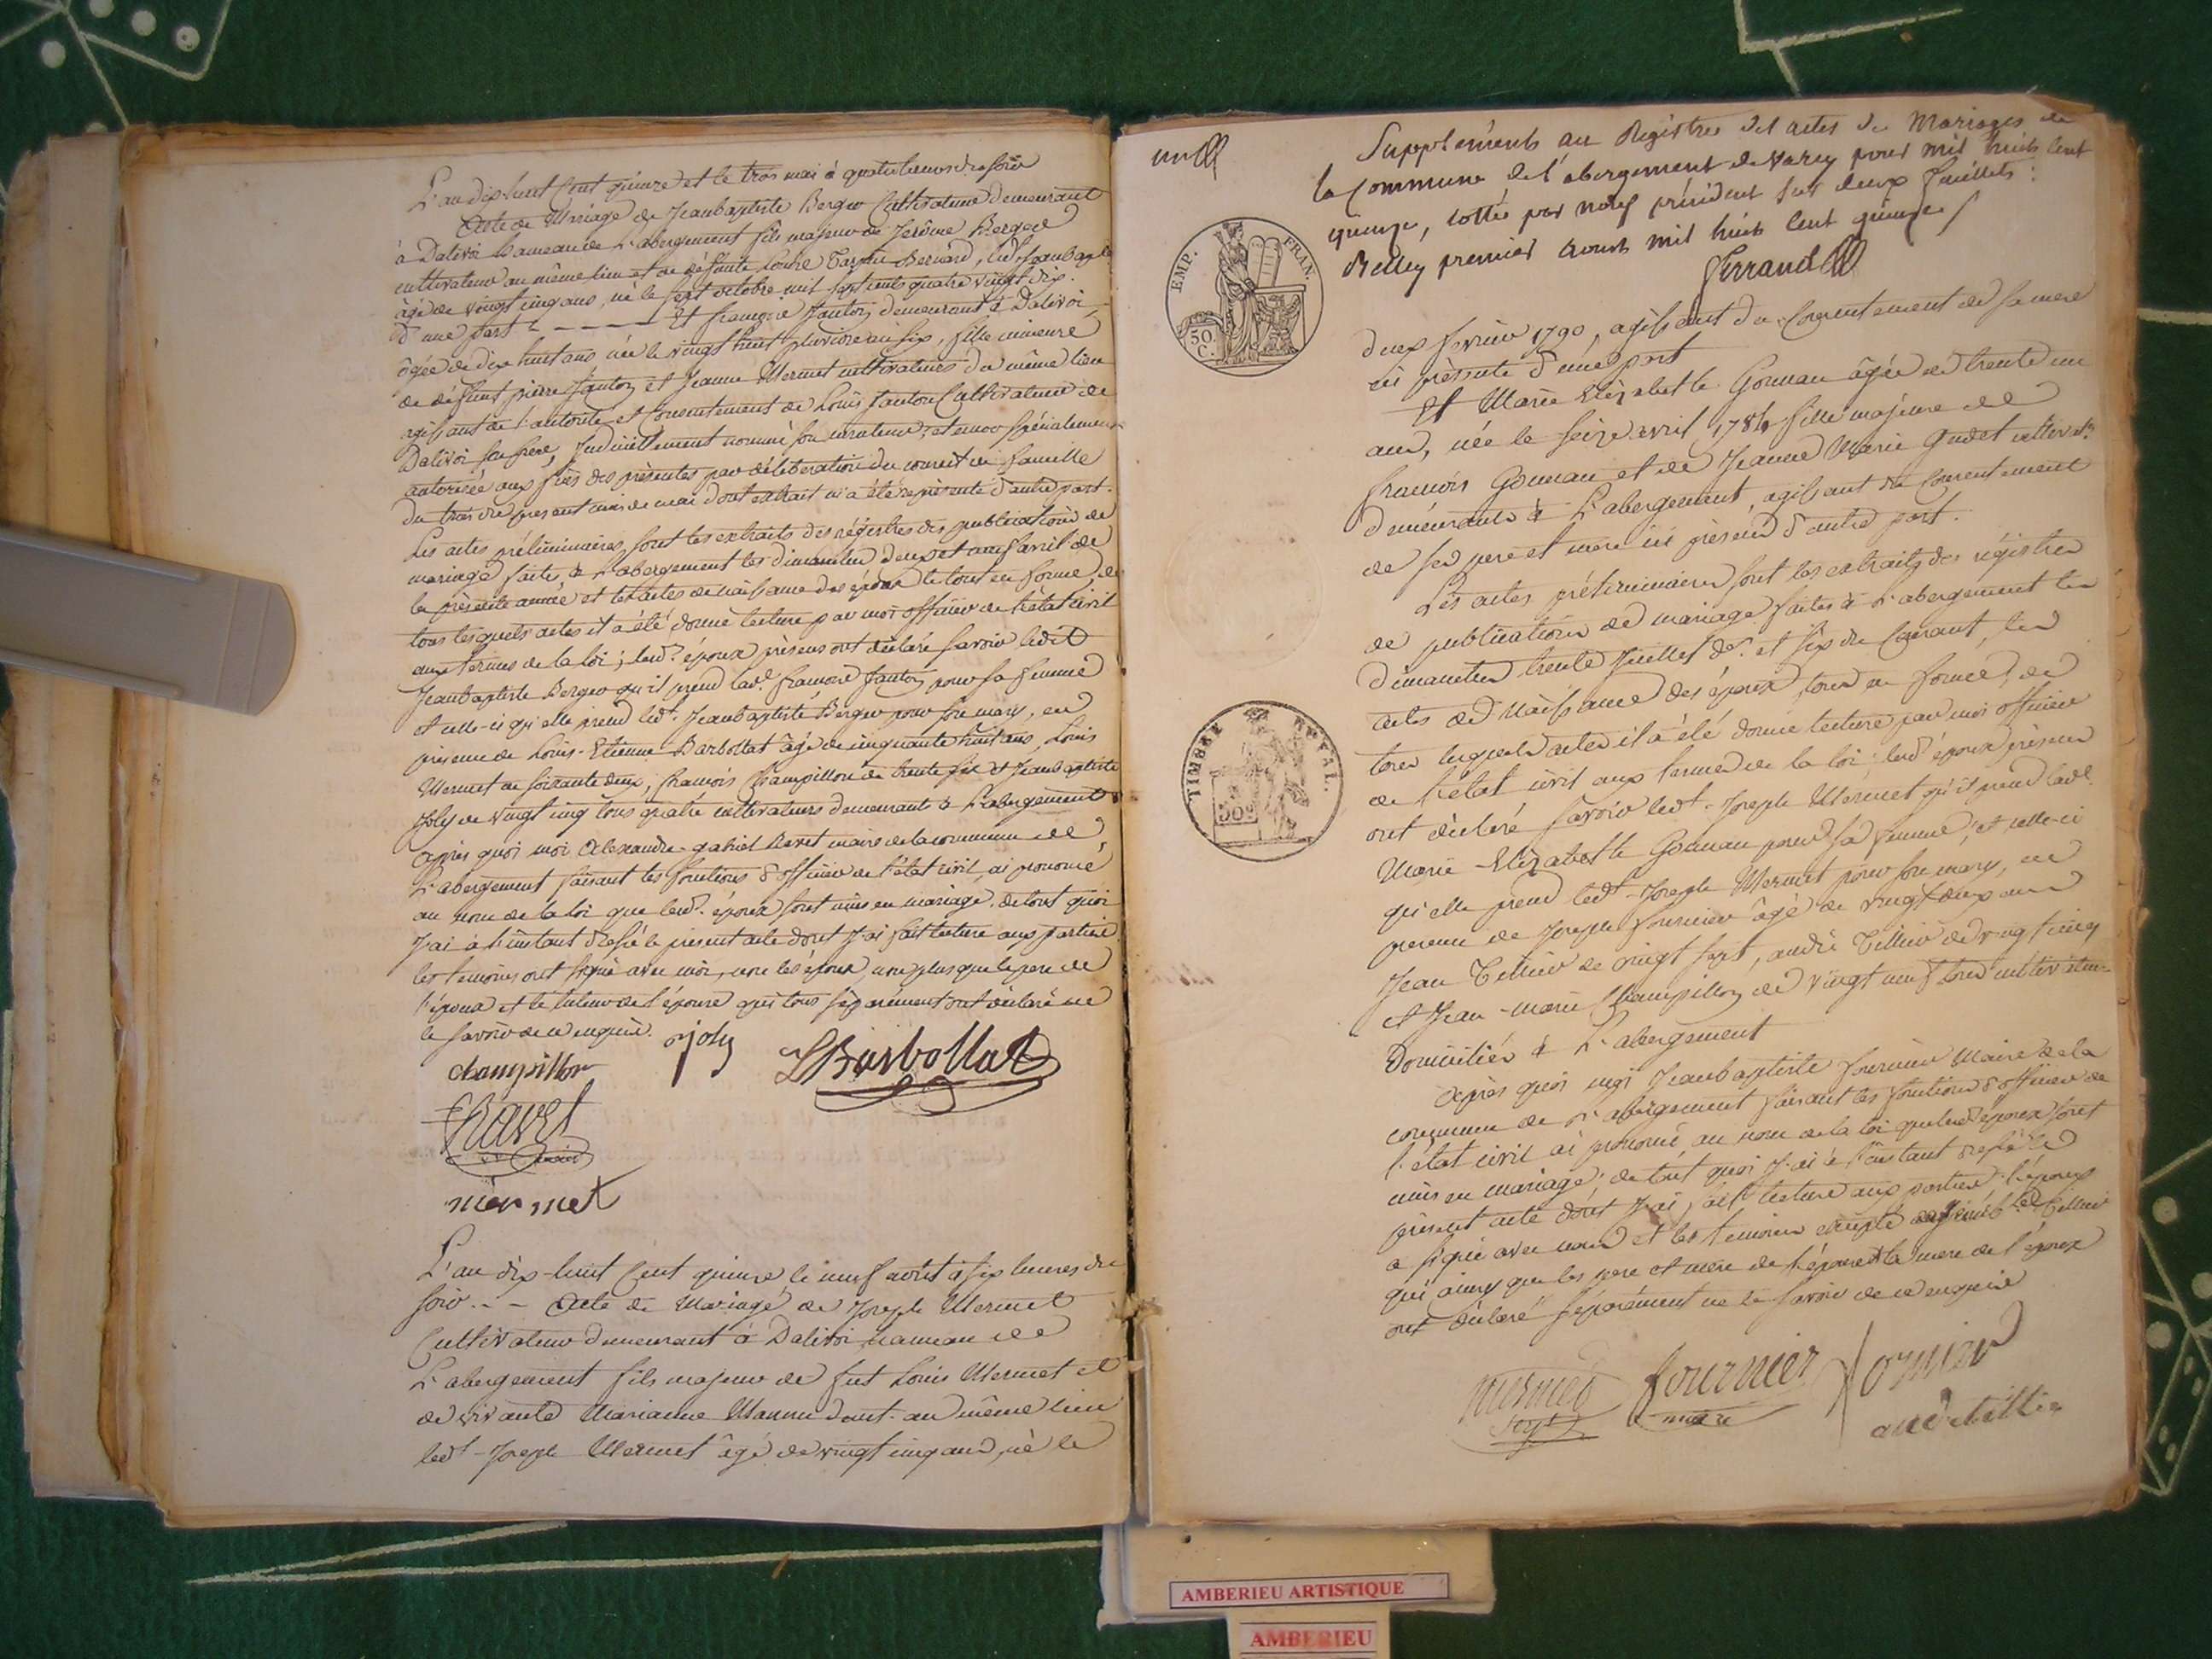 L'an dix huit cent quinze et le trois mai à quatre heures du soir
Acte de Mariage de Jeanbaptiste Berger Cultivateur demeurant
à Dalivoi hameau de L'abergement fils majeur de Jerôme Berger
cultivateur au même lieu et de défunte Bernard, led. Jeanbaptiste
âgé de vingt cinq ans, né le sept octobre mil sept cents quatre vingt dix.
d'une part - - - - Et françoise fanton demeurant à Dalivoi
âgée de dix huit ans née le vingt huit pluviose an six, fille mineure
de défunt pierre fanton et Jeanne Mermet cultivateurs du même lieu
agissant de l'autorité et Consentement de Louis fanton Cultivateur de
Dalivoi son frère, Judiciellement nommé son curateur; et encor spécialement
autorisée aux fins des présentes par déliberation du conseil de famille
du trois du present mois de mai dont extrait m'a été représenté d'autre part.
Les actes préliminaires sont les extraits des régistres des publications de
mariage faites à L'abergement les dimanches deux et neuf avril de
la présente année et les actes de naissance des époux le tout en forme, de
tous lesquels actes il a été donné lecture par moi officier de l'état civil
aux termes de la loi; lesd. époux présens ont déclaré savoir ledit
Jeanbaptiste Berger qu'il prend lad. françoise fanton pour sa femme
et celle-ci qu'elle prend led. Jeanbaptiste Berger pour son mary, en
présence de Louis-Etienne Barbollat âgé de cinquante huit ans, Louis
Mermet de soixante deux, francois Champillon de trente six et Jeanbaptiste
Joly de vingt cinq tous quatre cultivateurs demeurant à L'abergement
Après quoi moi Alexandre-gabriel Ravet maire de la commune de
L'abergement faisant les fonctions d'officier de l'état civil, ai prononcé
au nom de la loi que lesd. époux sont unis en mariage, de tout quoi
J'ai à l'instant dressé le présent acte dont J'ai fait lecture aux parties
les temoins ont signé avec moi, non les époux, non plus que le pere de
l'époux et le tuteur de l'épouse qui tous séparément ont déclaré ne
le savoir de ce enquis.
champillon joly LBarbollat
Ravet
mermet
L'an dix-huit Cent quinze le neuf août à six heures du
soir. - - Acte de Mariage de Joseph Mermet
Cultivateur demeurant à Dalivoi hameau de
L'abergement fils majeur de fut Louis Mermet et
de vivante Marianne demt. au même lieu
led. Joseph Mermet âgé de vingt cinq ans, né le
Supplément au Régistre des actes de Mariages de
la Commune de l'abergement de varey pour mil huit cent
quinze, cottée par nous président sur deux feuillets:
Belley premier aoust mil huit cent quinze
Ferrand
EMP. FRAN.
50. C.
deux fevrier 1790, agissant du Consentement de sa mere
ici présente d'une part
Et Marie Elizabeth Gonnan âgée de trente un
ans, née le seize avril 1784 fille majeure de
francois Gonnan et de Jeanne Marie Gudet cultivatrs
demeurants à L'abergement, agissant du Consentement
de ses pere et mere ici présens d'autre part.
Les actes préliminaires sont les extraits des régistres
de publications de mariage faites à L'abergement les
dimanches trente Juillet der. et six du Courant, les
actes de Naissance des époux, tous en forme; de
tous lesquels actes il a été donné lecture par moi officier
de l'état civil aux termes de la loi; lesd. époux présens
ont déclaré savoir led. Joseph Mermet qu'il prend lad.
Marie-Elizabeth Gonnan pour sa femme; et celle-ci
qu'elle prend led. Joseph Mermet pour son mary, en
presence de Joseph fournier âgé de vingt deux ans
Jean Tillier de vingt sept, andré Tillier de vingt cinq
et Jean-marie Champillon de vingt neuf tous cultivateurs
Domiciliés à L'abergement
TIMBRE ROYAL.
50c
Après quoi moi Jeanbaptiste fournier Maire de la
commune de L'abergement faisant les fonctions d'officier de
l'état civil ai prononcé au nom de la loi que lesd. époux sont
unis en mariage; de tout quoi J'ai à l'instant dressé le
présent acte dont J'ai fait lecture aux parties. l'époux
a signé avec nous et les temoins excepté led. Tillier
qui ainsy que les pere et mere de l'épouse et la mere de l'époux
ont déclaré séparément ne le savoir de ce enquis
mermet fournier fornier
maire
andré tillier
AMBERIEU ARTISTIQUE
AMBERIEU